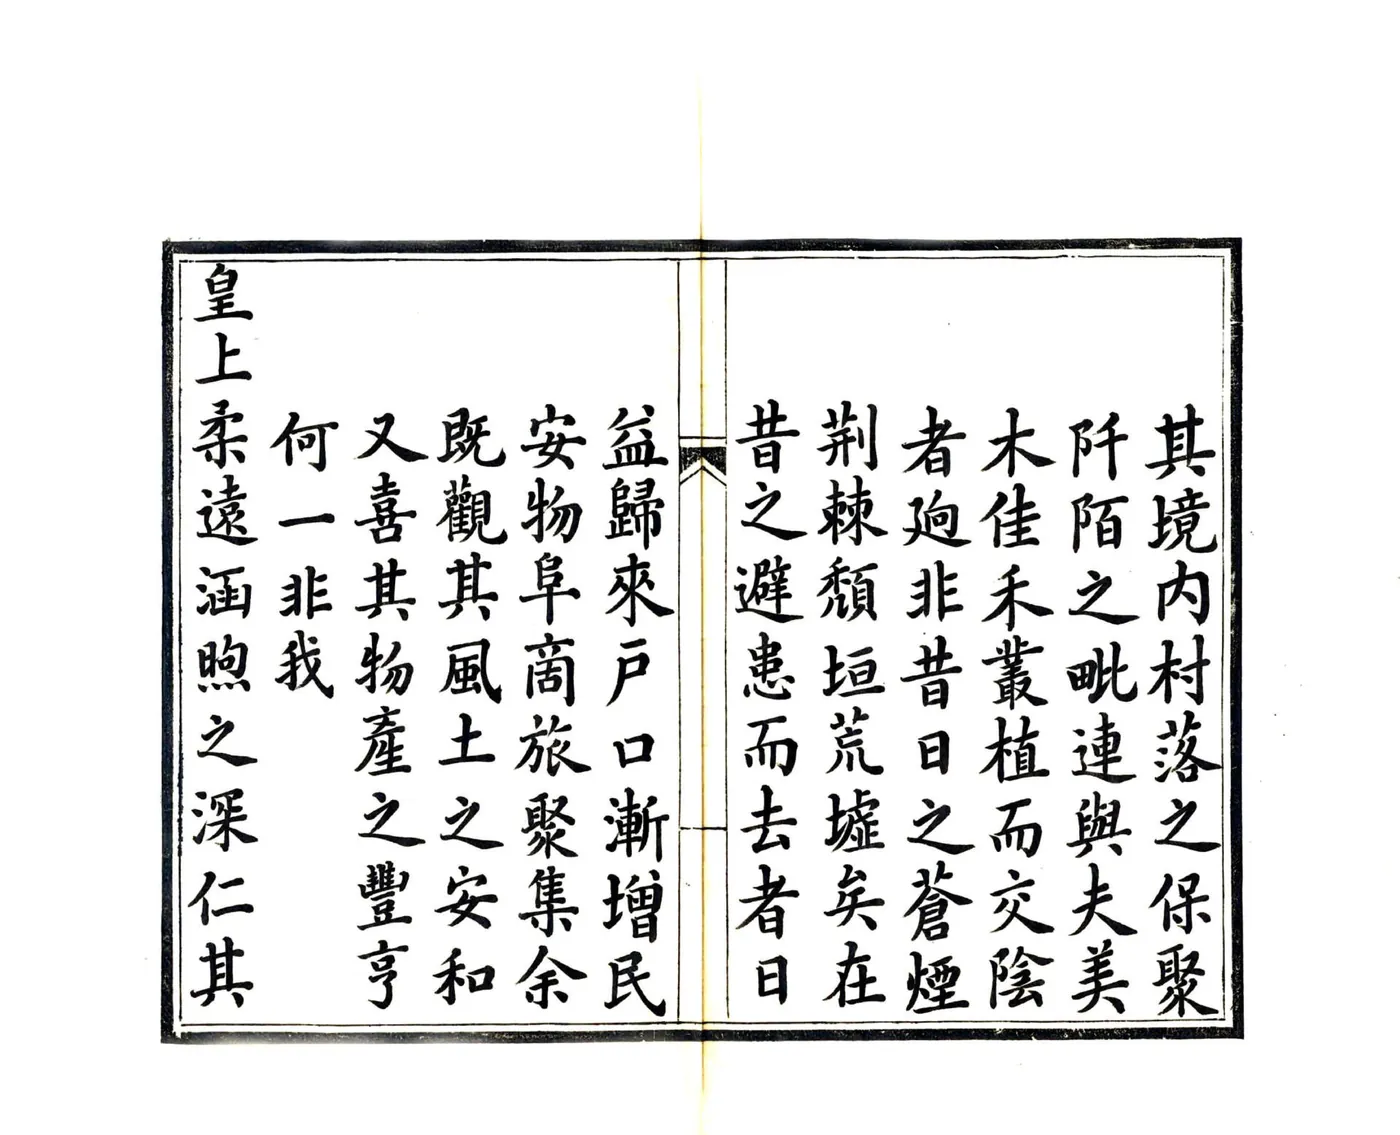 其境内村落之保聚
阡陌之毗連與夫美
木佳禾叢植而交陰
者逈非昔日之蒼煙
荆棘頽垣荒墟矣在
昔之避患而去者日
益歸來戸口漸增民
安物阜啇旅聚集余
既觀其風土之安和
又喜其物產之豐亨
何一非我
皇上柔遠涵煦之深仁其